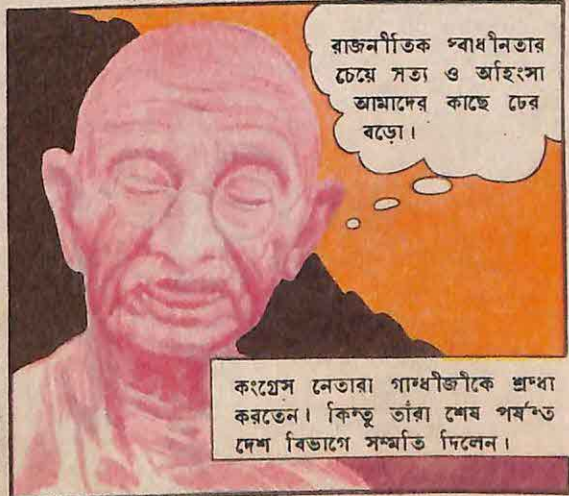 রাজনীতিক স্বাধীনতার
চেয়ে সত্য ও অহিংসা
আমাদের কাছে ঢের
বড়ো।
কংগ্রেস নেতারা গান্ধীজীকে শ্রদ্ধা
করতেন। কিন্তু তাঁরা শেষ পর্যন্ত
দেশ বিভাগে সম্মতি দিলেন।